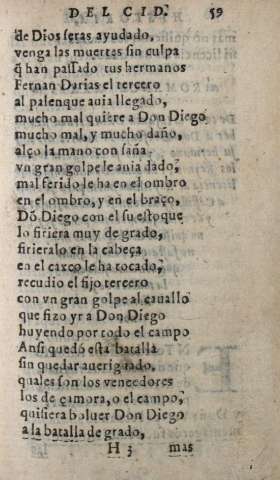 DEL CID. 59
de Dios seras ayudado,
venga las muertes sin culpa
q̃ han passado tus hermanos
Fernan Darias el tercero
al palenque auia llegado,
mucho mal quiere a Don Diego
mucho mal, y mucho daño,
alço la mano con saña
vn gran golpe le auia dado,
mal ferido le ha en el ombro
en el ombro, y en el braço,
Dõ Diego con el su estoque
lo firiera muy de grado,
firieralo en la cabeça
en el caxco le ha tocado,
recudio el fijo tercero
con vn gran golpe al cauallo
que fizo yr a Don Diego
huyendo por todo el campo
Ansi quedó esta batalla
sin quedar aueriguado,
quales son los vencedores
los de çamora, o el campo,
quisiera boluer Don Diego
a la batalla de grado,
H 3 mas